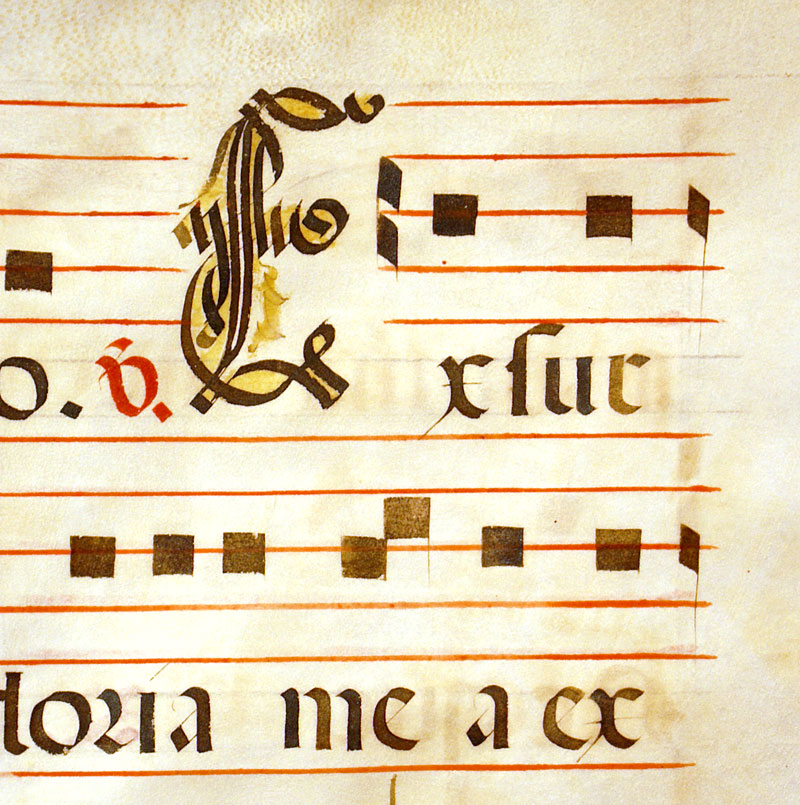 o. ℣. Exſur
loria me a ex